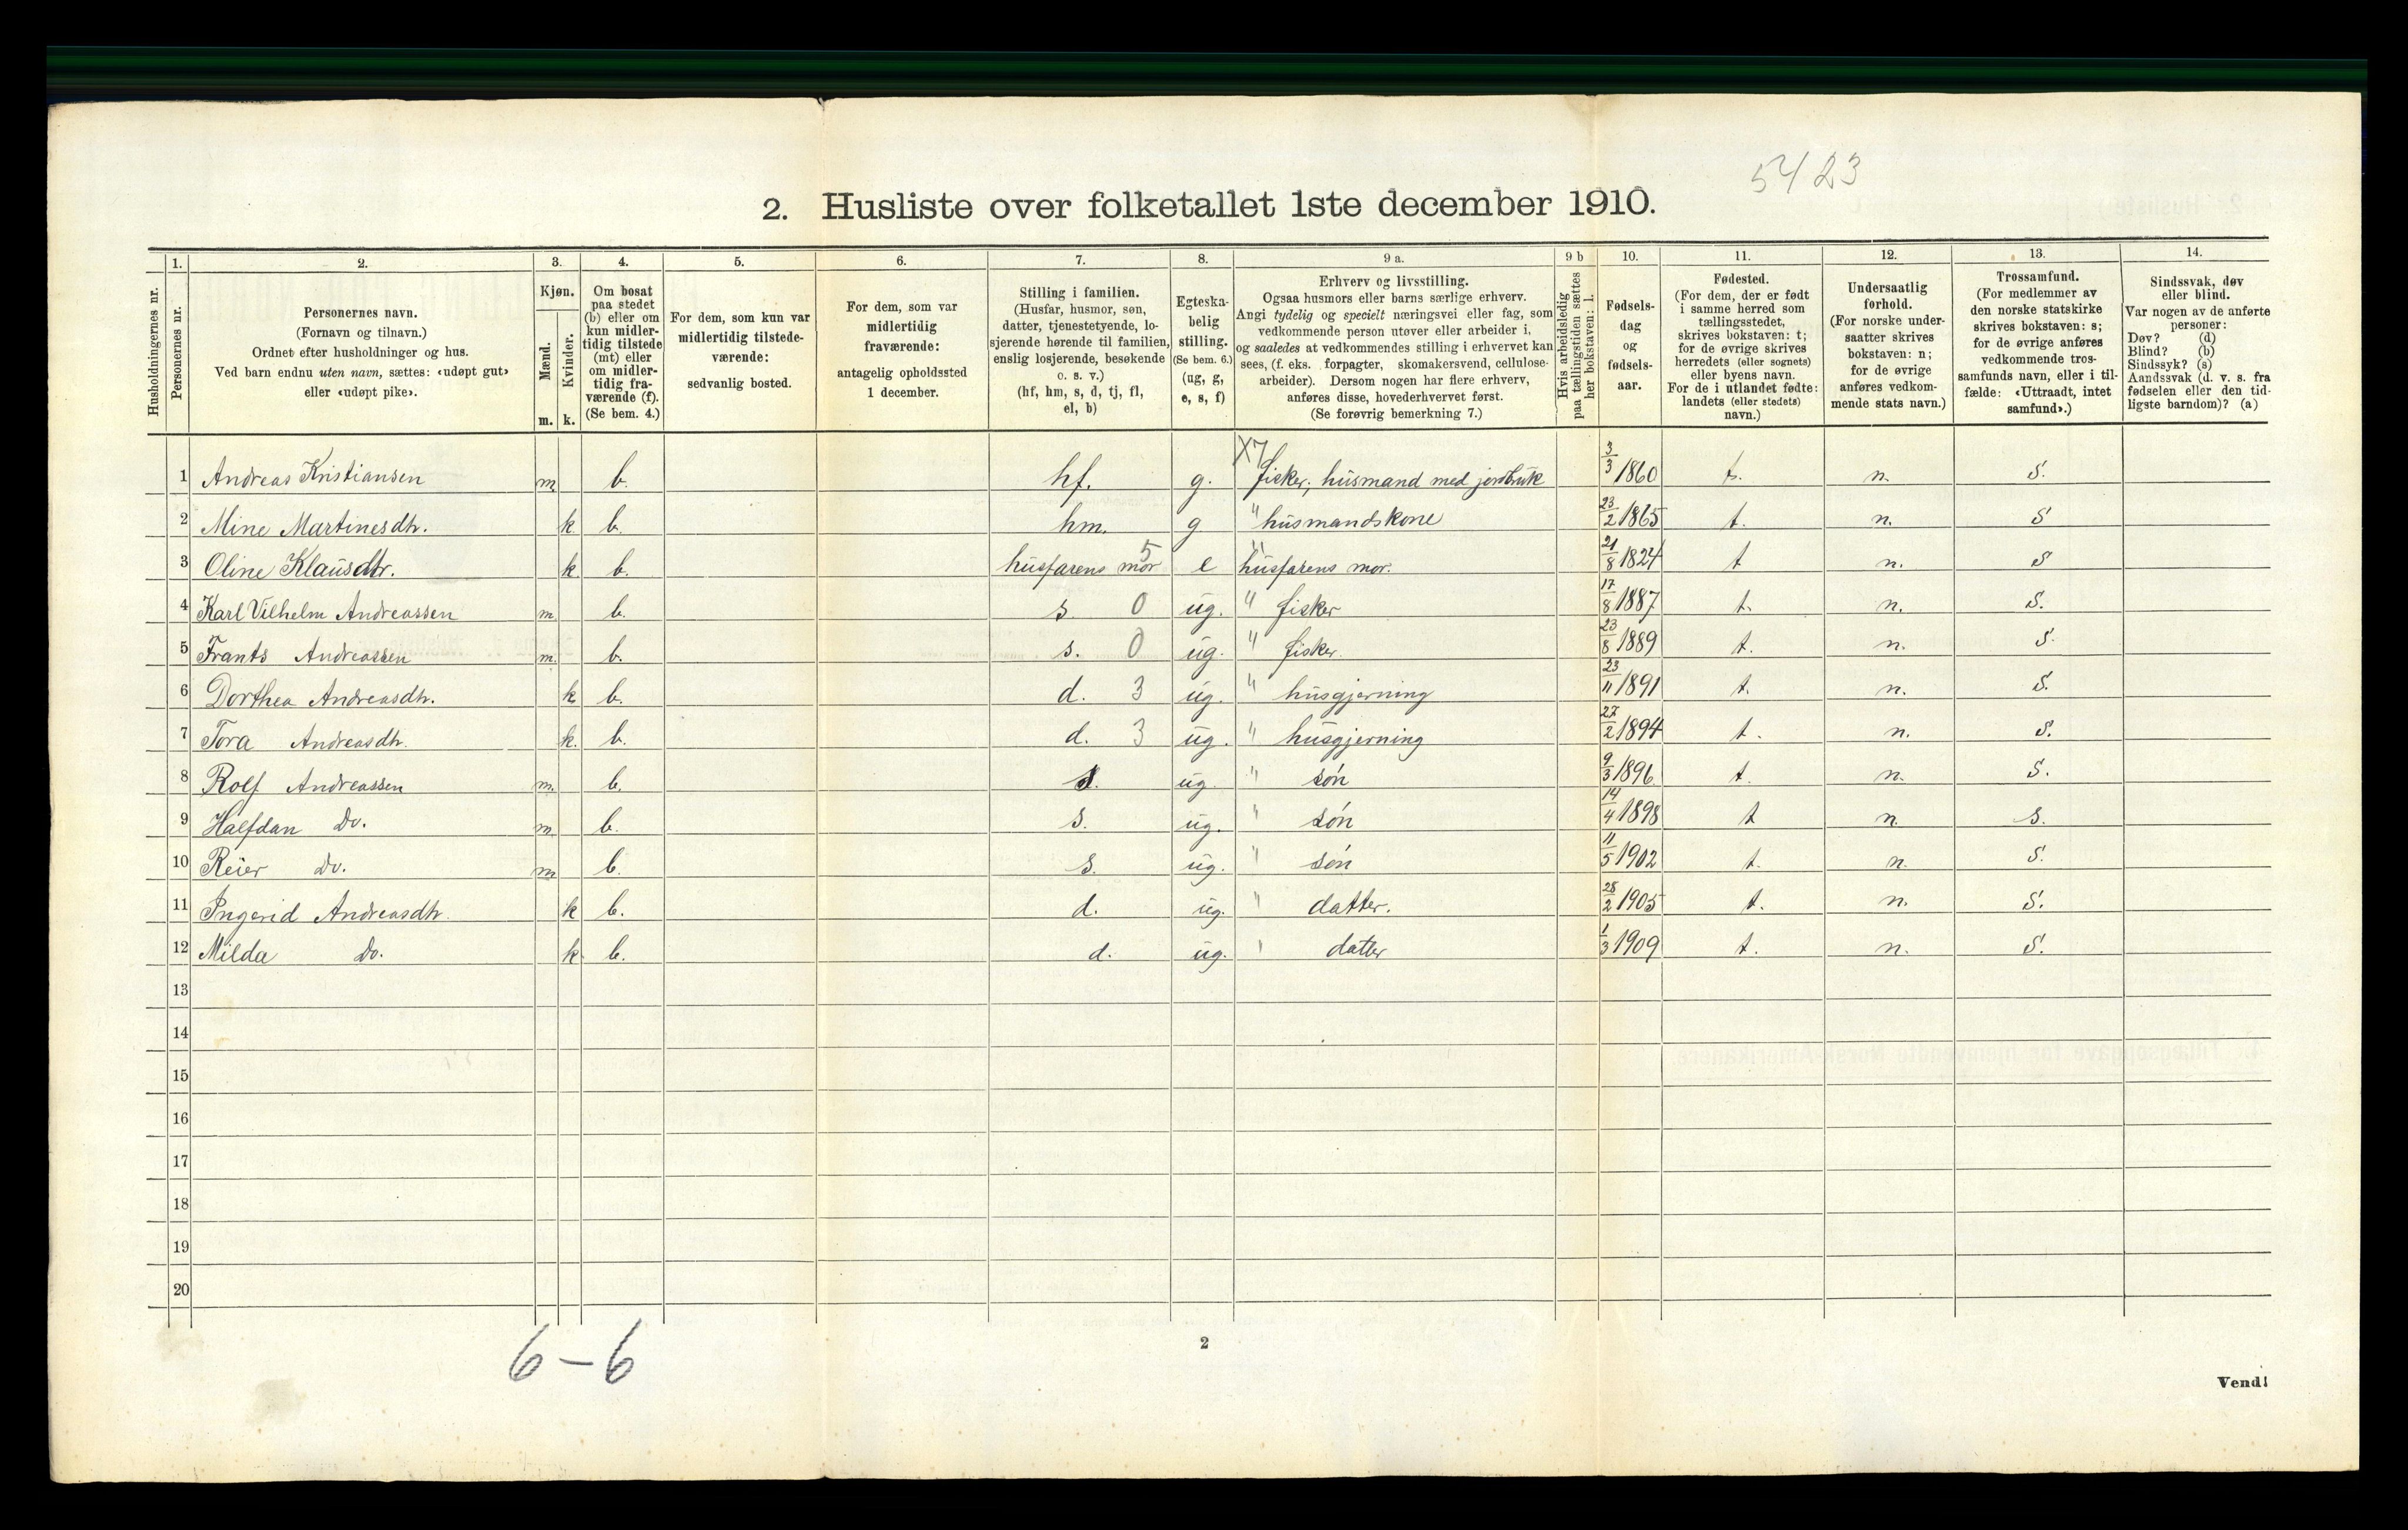 5423
2. Husliste over folketallet 1ste december 1910.
Husholdningernes nr.
1. Personernes nr.
2. Personernes navn.
(Fornavn og tilnavn.)
Ordnet efter husholdninger og hus.
Ved barn endnu uten navn, sættes: «udøpt gut»
eller «udøpt pike».
3. Kjøn.
Mænd. m.
Kvinder. k.
4. Om bosat
paa stedet
(b) eller om
kun midler-
tidig tilstede
(mt) eller
om midler-
tidig fra-
værende (f).
(Se bem. 4.)
5. For dem, som kun var
midlertidig tilstede-
værende:
sedvanlig bosted.
6. For dem, som var
midlertidig
fraværende:
antagelig opholdssted
1 december.
7. Stilling i familien.
(Husfar, husmor, søn,
datter, tjenestetyende, lo-
sjerende hørende til familien,
enslig losjerende, besøkende
o. s. v.)
(hf, hm, s, d, tj, fl,
el, b)
8. Egteska-
belig
stilling.
(Se bem. 6.)
(ug, g,
e, s, f)
9 a. Erhverv og livsstilling.
Ogsaa husmors eller barns særlige erhverv.
Angi tydelig og specielt næringsvei eller fag, som
vedkommende person utøver eller arbeider i,
og saaledes at vedkommendes stilling i erhvervet kan
sees, (f. eks. forpagter, skomakersvend, cellulose-
arbeider). Dersom nogen har flere erhverv,
anføres disse, hovederhvervet først.
(Se forøvrig bemerkning 7.)
9 b Hvis arbeidsledig
paa tællingstiden sættes
her bokstaven: l.
10. Fødsels-
dag
og
fødsels-
aar.
11. Fødested.
(For dem, der er født
i samme herred som
tællingsstedet,
skrives bokstaven: t;
for de øvrige skrives
herredets (eller sognets)
eller byens navn.
For de i utlandet fødte:
landets (eller stedets)
navn.)
12. Undersaatlig
forhold.
(For norske under-
saatter skrives
bokstaven: n;
for de øvrige
anføres vedkom-
mende stats navn.)
13. Trossamfund.
(For medlemmer av
den norske statskirke
skrives bokstaven: s;
for de øvrige anføres
vedkommende tros-
samfunds navn, eller i til-
fælde: «Uttraadt, intet
samfund».)
14. Sindssvak, døv
eller blind.
Var nogen av de anførte
personer:
Døv? (d)
Blind? (b)
Sindssyk? (s)
Aandssvak (d. v. s. fra
fødselen eller den tid-
ligste barndom)? (a)
X7
1 Andreas Kristiansen m b. hf. g. fisker, husmand med jordbruk 3/3 1860 t. n. S.
2 Mine Martinesdtr. k b. hm. g " husmandskone 23/2 1865 t. n. S
3 Oline Klausdtr. k b. husfarens mor 5 e " husfarens mor. 21/8 1824 t n. S
4 Karl Vilhelm Andreassen m b. s. 0 ug. " fisker 17/8 1887 t. n. S.
5 Frants Andreassen m. b. s. 0 ug. " fisker. 23/8 1889 t. n. S.
6 Dorthea Andreasdtr. k b. d. 3 ug. " husgjerning 23/11 1891 t. n. S.
7 Tora Andreasdtr. k. b. d. 3 ug. " husgjerning 27/2 1894 t. n. S.
8 Rolf Andreassen m. b. s. ug. " søn 9/3 1896. t. n. S.
9 Halfdan Do. m. b. s. ug. " søn 14/4 1898 t n. s.
10 Reier Do. m b. s. ug. " søn 11/5 1902 t. n. S.
11 Ingerid Andreasdtr. k b. d. ug. " datter. 28/2 1905 t. n. S.
12 Milda Do. k b. d. ug. " datter 1/3 1909 t. n. S.
13
14
15
16
17
18
19
20
6-6
2
Vend!